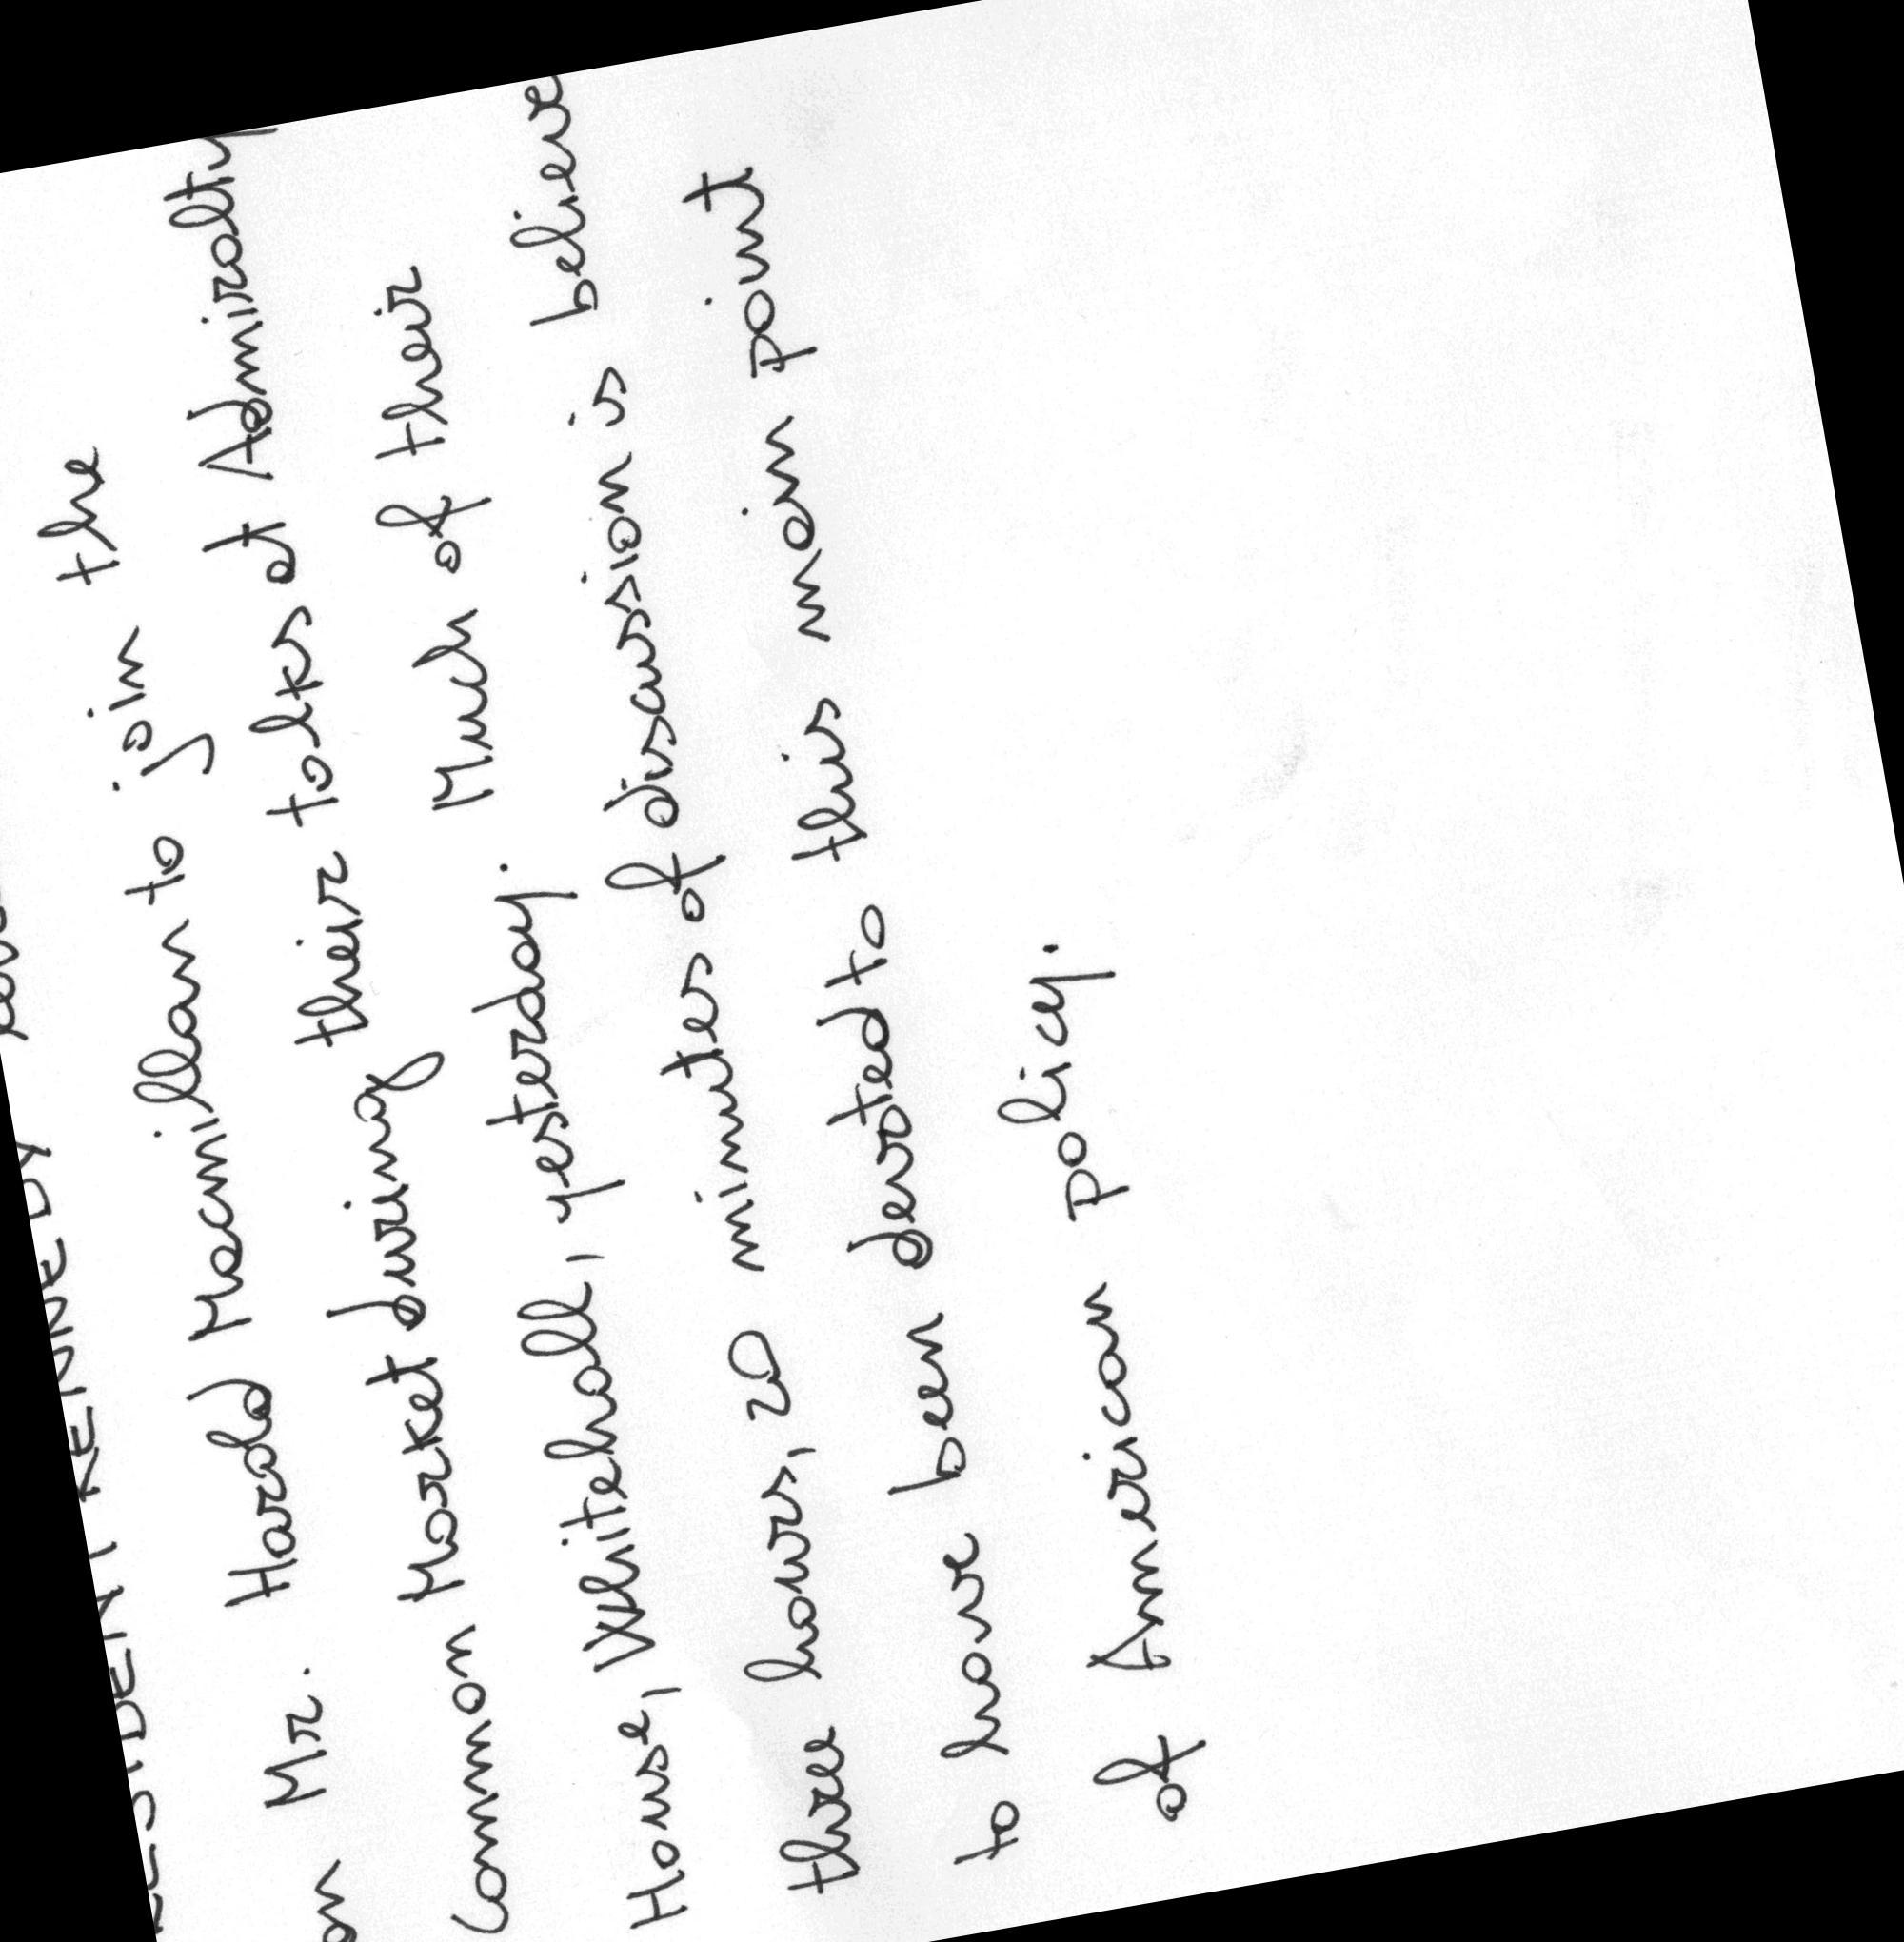 PRESIDENT KENNEDY
on Mr. Harold Macmillan to join the
Common Market during their talks at Admiralty
House, Whitehall, yesterday. Much of their
three hours, 20 minutes of discussion is believe
to have been devoted to this main point
of American policy.